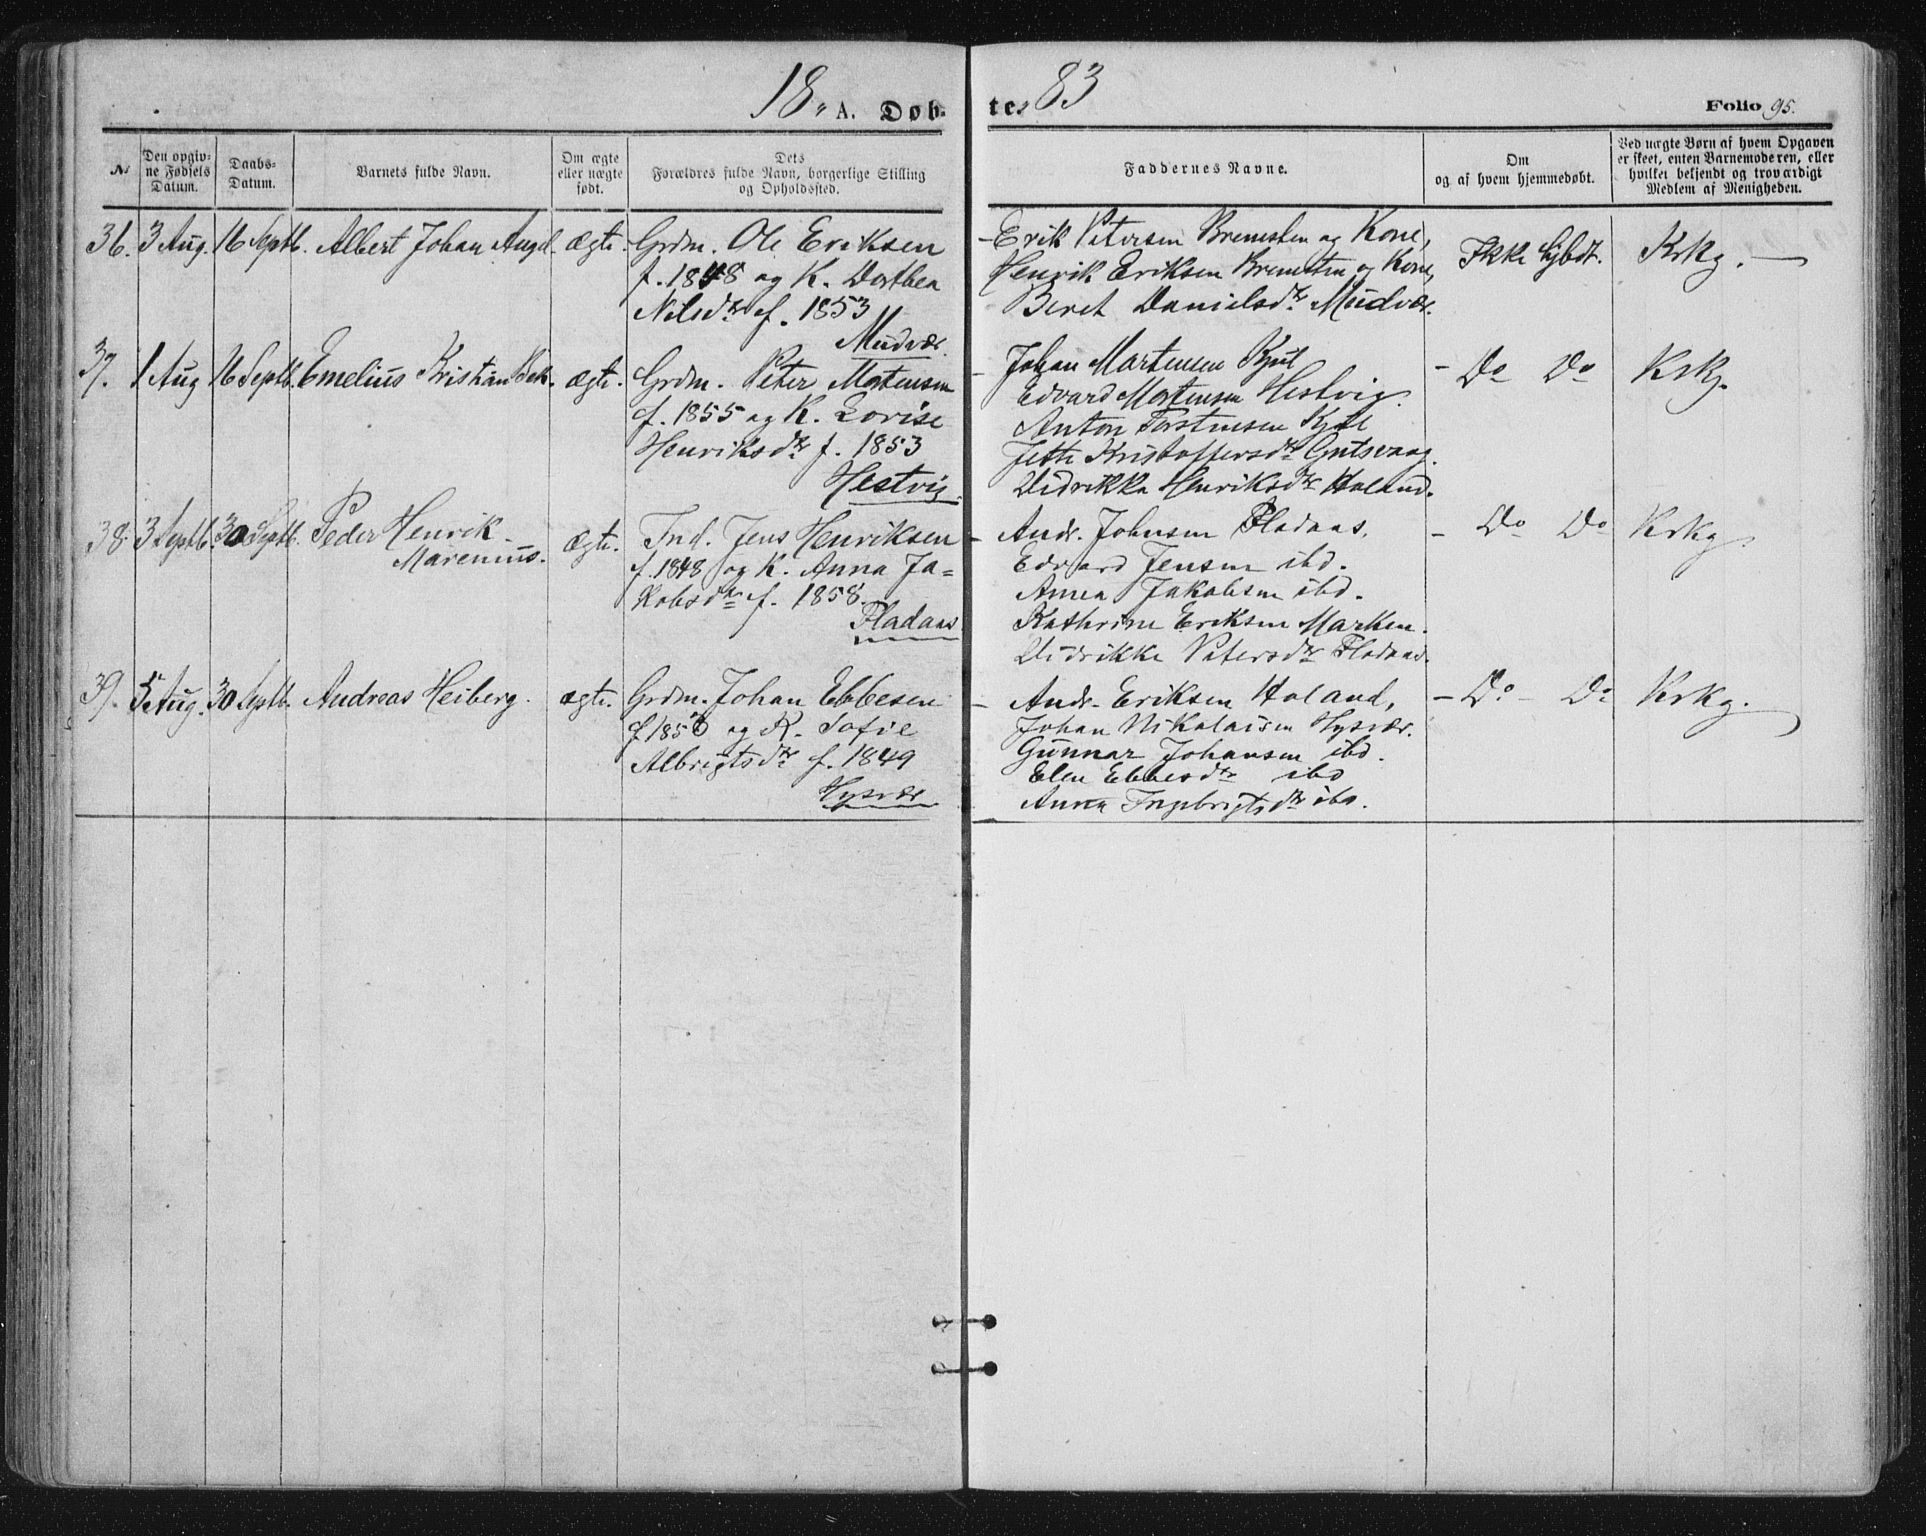 18 83
A. Døbte.
Folio 95.
No
Den opgivne Fødsels Datum.
Daabs-Datum.
Barnets fulde Navn.
Om ægte eller uægte født.
Dets Forældres fulde Navn, borgerlige Stilling og Opholdssted.
Faddernes Navne.
Om og af hvem hjemmedøbt.
Ved uægte Børn af hvem Opgaven er skeet, enten Barnemoderen, eller hvilket bekjendt og troværdigt Medlem af Menigheden.
36. 3 Aug. 16 Septb. Albert Johan Angel. ægte.
Grdm. Ole Eriksen
f. 1848 og K. Dorthea
Nilsdtr f. 1853
Mudvær.
Erik Petersen Bremsten og Kone,
Henrik Eriksen Bremsten og Kone,
Beret Danielsdtr Mudvær.
Ikke Hjbdt.
Krkg.
37. 1 Aug 16 Septb. Emelius Kristian Bek. ægte.
Grdm. Peter Mortensen
f. 1855 og K. Lovise
Henriksdtr f. 1853
Hestvig.
Johan Mortensen
Edvard Mortensen Hestvig
Anton Torstensen
Jette Kristoffersdtr
Didrikka Henriksdtr Holand.
Do Do
Krkg.
38. 3 Septb. 30 Septb. Peder Henrik
Marenius. ægte.
Ind. Jens Henriksen
f. 1848 og K. Anna Ja=
kobsdtr f. 1858.
Fladaas
Andr. Johnsen Fladaas.
Edvard Jensen ibd.
Anna Jakobsen ibd.
Kathrine Eriksen Marken.
Didrikke Petersdtr Fladaas.
Do Do
Krkg.
39. 5 Aug. 30 Septb. Andreas Heiberg. ægte.
Grdm. Johan Ebbesen
f 1850 og K. Sofie
Albrigtsdtr f. 1849
Hysvær
Andr. Eriksen Holand,
Johan Nikolaisen Hysvær.
Gunnar Johansen ibd.
Elen Ebbesdtr ibd
Anna Ingebrigtsdtr ibd.
Do Do
Krkg.